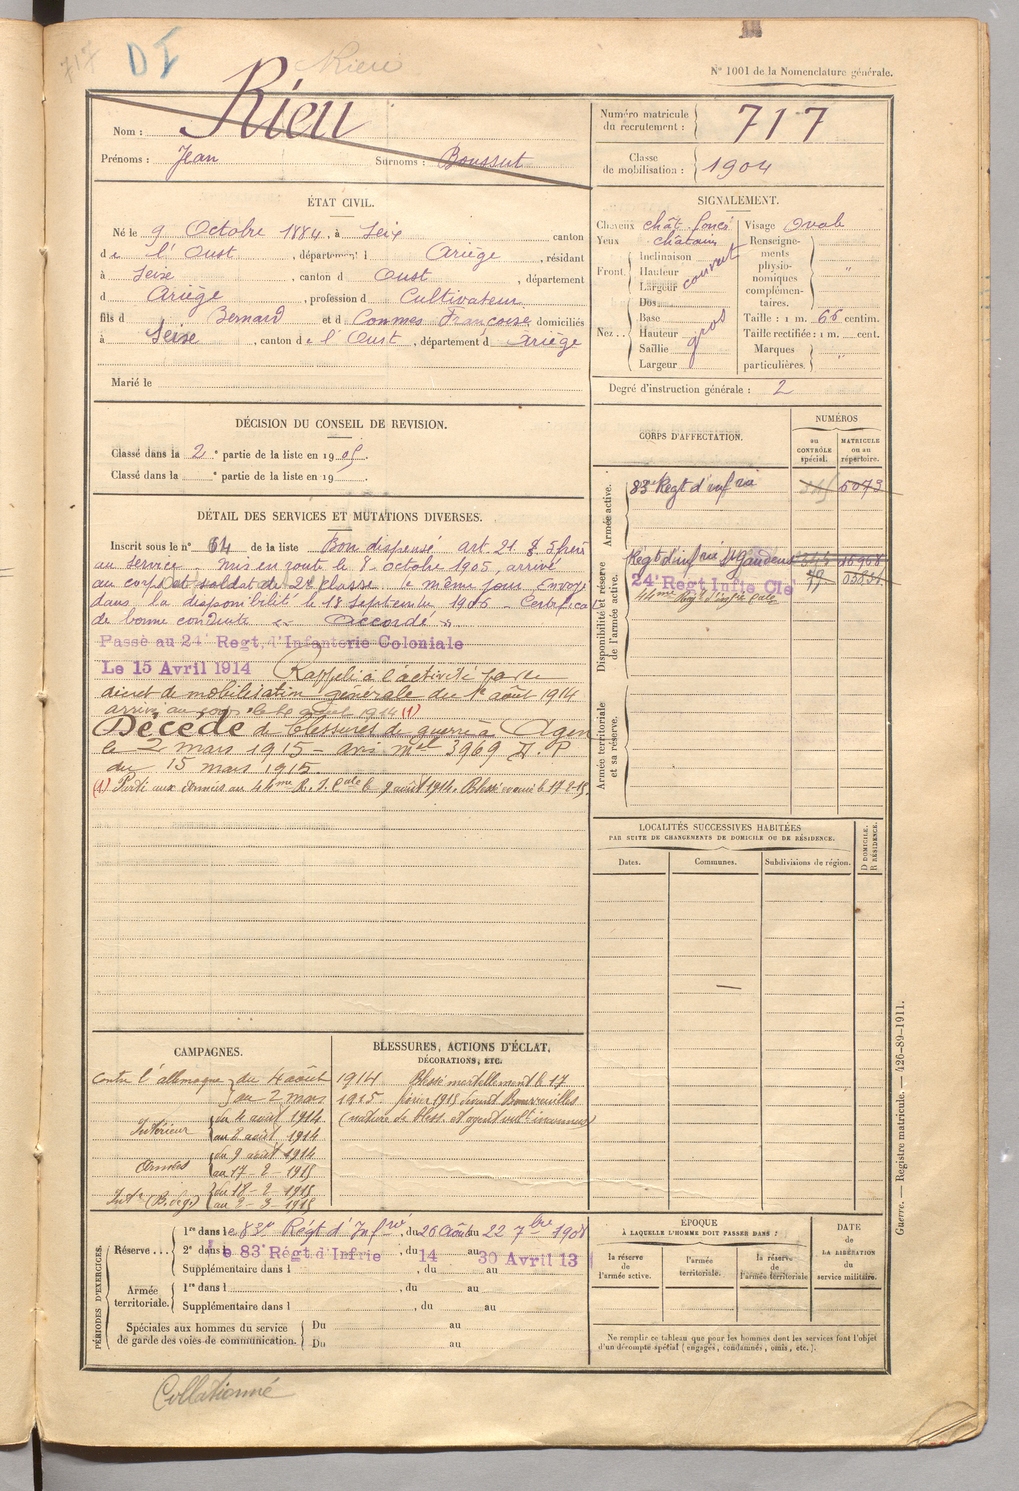 717
DI
Rieu
Nº 1001 de la Nomenclature générale.
Nom : Rieu
Prénoms : Jean Surnoms : Boussut
Numéro matricule du recrutement : 717
Classe de mobilisation : 1904
ÉTAT CIVIL.
Né le 9 Octobre 1884, à Seix canton
de l'Oust, département d Ariège, résidant
à Seix, canton d Oust, département
d Ariège, profession d Cultivateur
fils d Bernard et d Commes Françoise domiciliés
à Seix, canton de l'Oust, département d Ariège
Marié le
SIGNALEMENT.
Cheveux chât. foncé Visage Ovale
Yeux chatain Renseignements physionomiques complémentaires. "
Front. Inclinaison Hauteur Largeur couvert
Nez. Dos Base Hauteur Saillie Largeur gros
Taille : 1 m. 66 centim.
Taille rectifiée : 1 m. cent.
Marques particulières. "
Degré d'instruction générale : 2
DÉCISION DU CONSEIL DE REVISION.
Classé dans la 2e partie de la liste en 1905.
Classé dans la e partie de la liste en 19 .
CORPS D'AFFECTATION.
NUMÉROS
au CONTRÔLE spécial.
MATRICULE ou au répertoire.
Armée active.
83e Regt d'infrie 5073
Disponibilité et réserve de l'armée active.
Regt d'infrie St Gaudens
24e Regt Infie Cle
44me Regt d'infie Cale
Armée territoriale et sa réserve.
DÉTAIL DES SERVICES ET MUTATIONS DIVERSES.
Inscrit sous le nº 64 de la liste Bon dispensé art. 21 § 5 frère
au service. Mis en route le 8 octobre 1905, arrivé
au corps et soldat de 2e classe le même jour. Envoyé
dans la disponibilité le 18 septembre 1906 - Certificat
de bonne conduite " Accordé "
Passé au 24e Regt, d'Infanterie Coloniale
Le 15 Avril 1914 Rappelé à l'activité par le
décret de mobilisation générale du 1er août 1914
arrivé au corps le août 1914 (1)
Décédé de blessures de guerre à Agen
le 2 mars 1915 - avis mel 3969 D. P
du 15 mars 1915.
(1) Parti aux armées au 44me R. I. Cale le 9 août 1914. Blessé le 17-2-15.
LOCALITÉS SUCCESSIVES HABITÉES
PAR SUITE DE CHANGEMENTS DE DOMICILE OU DE RÉSIDENCE.
Dates. Communes. Subdivisions de région. D DOMICILE. R RÉSIDENCE.
CAMPAGNES.
Contre l'allemagne du 4 août 1914
au 2 mars 1915
Intérieur du 4 août 1914
au 8 août 1914
Armées du 9 août 1914
au 17-2-1915
Intr (B. de g.) du 18-2-1915
au 2-3-1915
BLESSURES, ACTIONS D'ÉCLAT,
DÉCORATIONS, ETC.
Blessé mortellement le 17
février 1915 devant Boureuilles
(nature de bless. et agent vult inconnus)
PÉRIODES D'EXERCICES.
Réserve... 1re dans le 83e Régt d'Infrie, du 26 Août au 22 7bre 1908
2e dans le 83e Régt d'Infrie, du 14 au 30 Avril 13
Supplémentaire dans l , du au
Armée territoriale. 1re dans l , du au
Supplémentaire dans l , du au
Spéciales aux hommes du service de garde des voies de communication. Du au
Du au
ÉPOQUE
À LAQUELLE L'HOMME DOIT PASSER DANS :
la réserve de l'armée active.
l'armée territoriale.
la réserve de l'armée territoriale
DATE de LA LIBÉRATION du service militaire.
Ne remplir ce tableau que pour les hommes dont les services font l'objet
d'un décompte spécial (engagés, condamnés, omis, etc.).
Guerre. — Registre matricule. — 426-89-1911.
Collationné